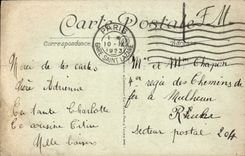 Carte Postale
F.M
Correspondance
PARIS
10 - 
1923
GARE SAINT LAZARE
Merci de tes cartes
chère Adrienne
Ta tante Charlotte
Ta cousine
Mille baisers
Mr et Mme Chapin
régie des Chemins de
fer à Mulheim
Rhuhr
Secteur postal 204